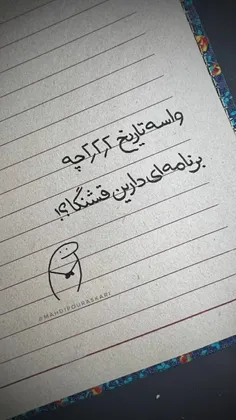 واسه تاریخ ۲٫۲٫۲ چه
برنامه‌ای دارین قشنگا؟!
@MAHDIPOURASKARI